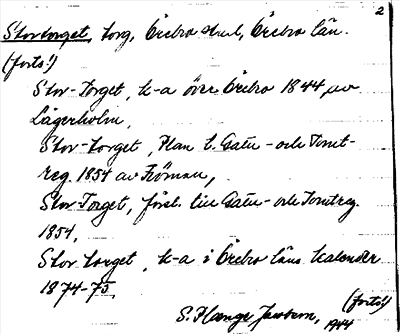 2
Stortorget, torg, Örebro stad, Örebro län.
(forts!)
Stor-Torget, k-a över Örebro 1844 av
Lagerholm,
Stor-torget, Plan t. Gatu- och Tomt-
reg. 1854 av Fröman,
Stor Torget, försl. till Gatu- och Tomtreg.
1854,
Stor torget, k-a i Örebro läns kalender
1874-75.
(forts!)
S. 1944